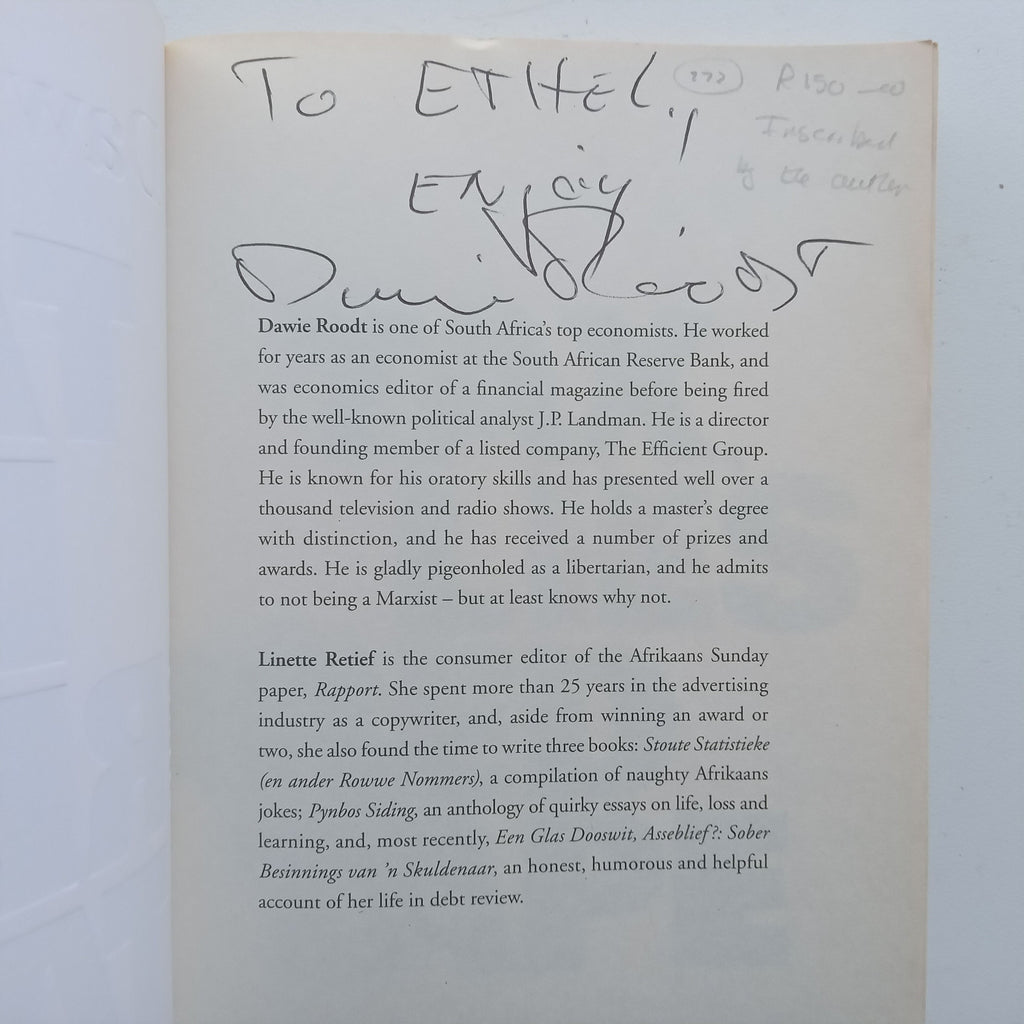 TO ETHEL,
R150-00
Inscribed
by the author
ENJOY
Dawie Roodt
Dawie Roodt is one of South Africa's top economists. He worked
for years as an economist at the South African Reserve Bank, and
was economics editor of a financial magazine before being fired
by the well-known political analyst J.P. Landman. He is a director
and founding member of a listed company, The Efficient Group.
He is known for his oratory skills and has presented well over a
thousand television and radio shows. He holds a master's degree
with distinction, and he has received a number of prizes and
awards. He is gladly pigeonholed as a libertarian, and he admits
to not being a Marxist – but at least knows why not.
Linette Retief is the consumer editor of the Afrikaans Sunday
paper, Rapport. She spent more than 25 years in the advertising
industry as a copywriter, and, aside from winning an award or
two, she also found the time to write three books: Stoute Statistieke
(en ander Rowwe Nommers), a compilation of naughty Afrikaans
jokes; Pynbos Siding, an anthology of quirky essays on life, loss and
learning, and, most recently, Een Glas Dooswit, Asseblief?: Sober
Besinnings van 'n Skuldenaar, an honest, humorous and helpful
account of her life in debt review.